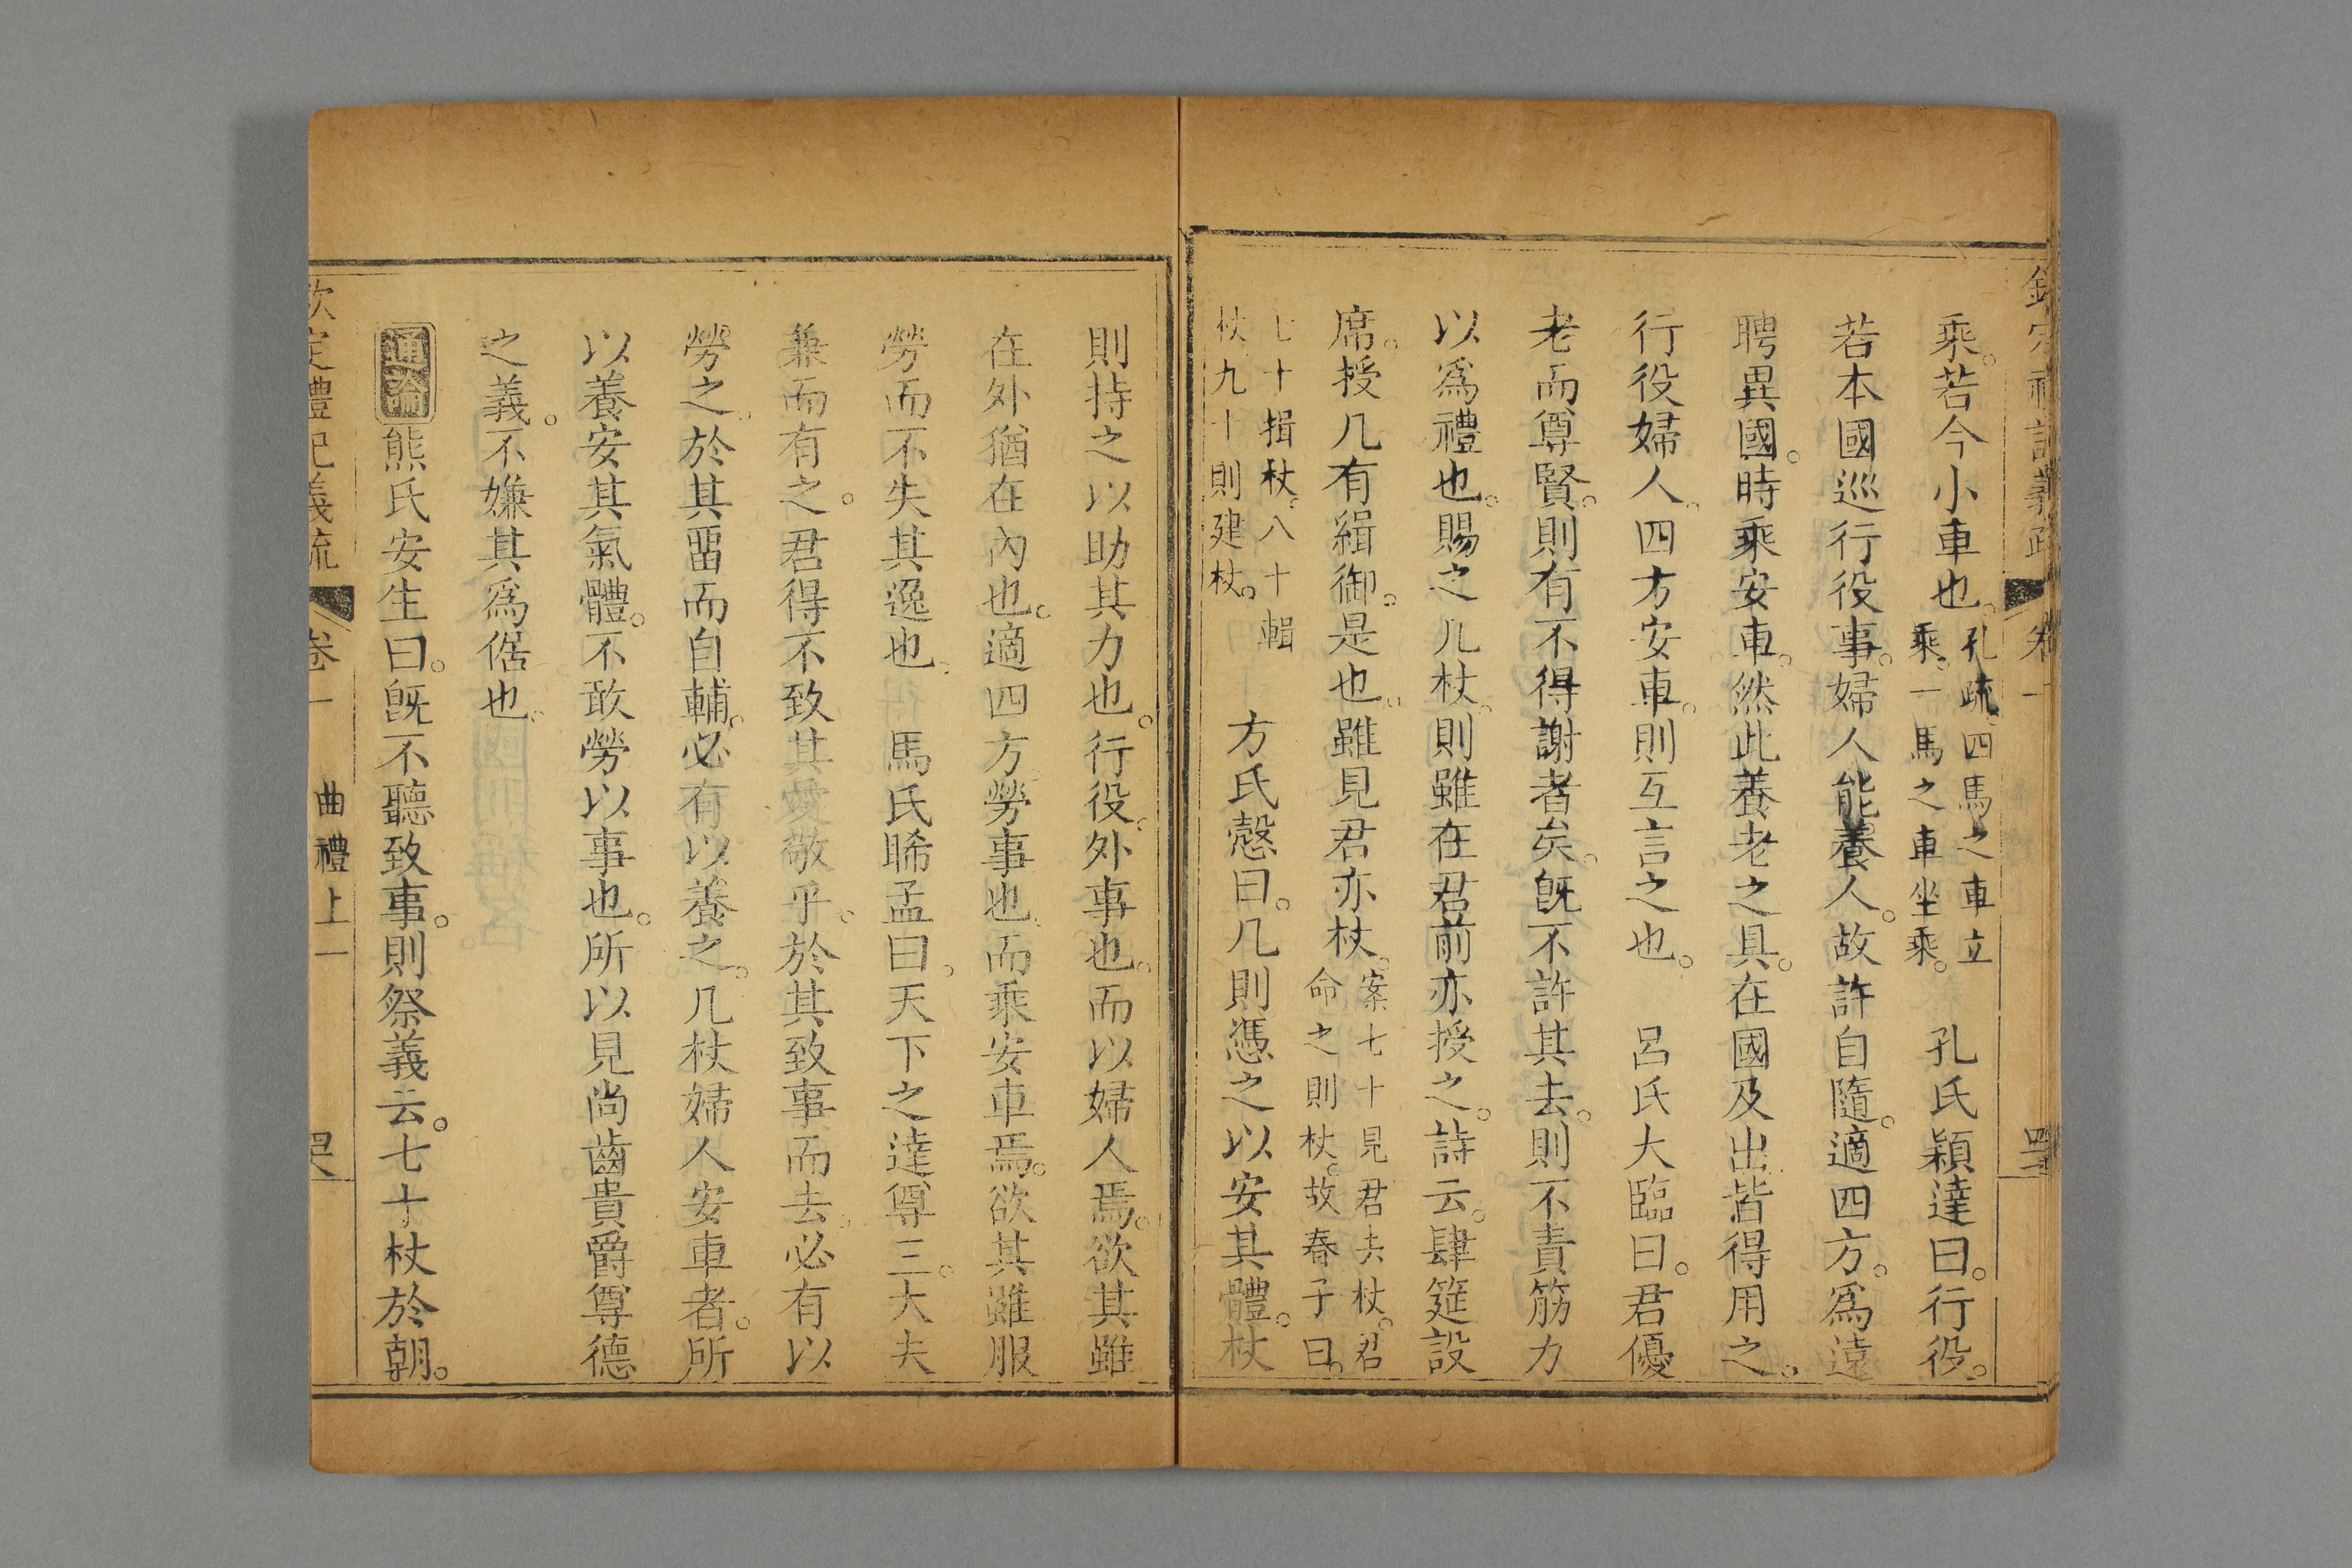 欽定禮記義疏 卷一
乘。若今小車也。孔疏。四馬之車立乘。一馬之車坐乘。 孔氏穎達曰。行役。
若本國巡行役事。婦人能養人。故許自隨。適四方。爲遠
聘異國。時乘安車。然此養老之具。在國及出皆得用之。
行役婦人。四方安車。則互言之也。 呂氏大臨曰。君優
老而尊賢。則有不得謝者矣。旣不許其去。則不責筋力
以爲禮也。賜之几杖。則雖在君前亦授之。詩云。肆筵設
席。授几有緝御。是也。雖見君亦杖。案七十見君去杖。君命之則杖。故春子曰。
七十揖杖。八十輯杖九十則建杖。 方氏慤曰。几則憑之以安其體。杖
則持之以助其力也。行役。外事也。而以婦人焉。欲其雖
在外猶在內也。適四方。勞事也。而乘安車焉。欲其雖服
勞而不失其逸也。 馬氏睎孟曰。天下之達尊三。大夫
兼而有之。君得不致其愛敬乎。於其致事而去。必有以
勞之。於其畱而自輔。必有以養之。几杖婦人安車者。所
以養安其氣體。不敢勞以事也。所以見尚齒貴爵尊德
之義。不嫌其爲倨也。
通論 熊氏安生曰。旣不聽致事。則祭義云。七十杖於朝。
欽定禮記義疏 卷一 曲禮上一